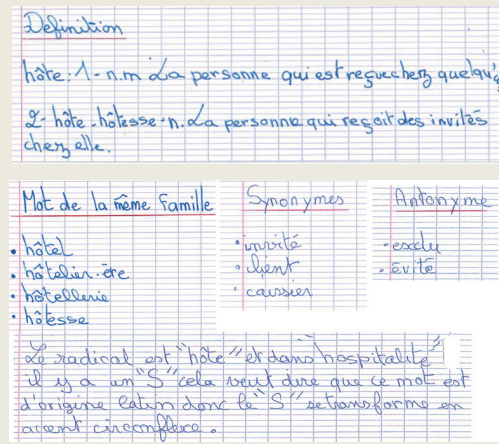 Definition
hôte: 1- n.m La personne qui est reçue chez quelqu'
2- hôte - hôtesse - n. La personne qui reçoit des invités
chez elle.
Mot de la même Famille
• hôtel
• hôtelier - ère
• hôtellerie
• hôtesse
Synonymes
• invité
• client
• caissier
Antonyme
- exclu
- Évité
Le radical est "hôte" et dans "hospitalité"
il y a un "S" cela veut dire que ce mot est
d'origine latin donc le "S" se transforme en
accent circonflexe.